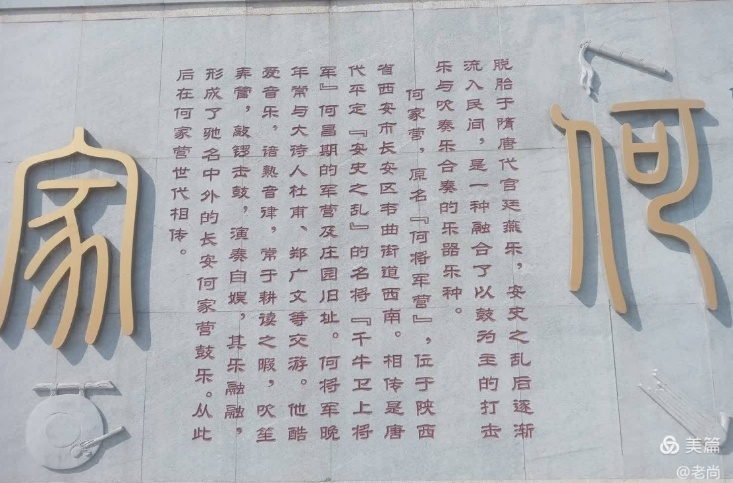 何
脱胎于隋唐代宫廷燕乐，安史之乱后逐渐
流入民间，是一种融合了以鼓为主的打击
乐与吹奏乐合奏的乐器乐种。
何家营，原名『何将军营』，位于陕西
省西安市长安区韦曲街道西南。相传是唐
代平定『安史之乱』的名将『千牛卫上将
军』何昌期的军营及庄园旧址。何将军晚
年常与大诗人杜甫、郑广文等交游。他酷
爱音乐，谙熟音律，常于耕读之暇，吹笙
弄管，敲锣击鼓，演奏自娱，其乐融融，
形成了驰名中外的长安何家营鼓乐。从此
后在何家营世代相传。
家
美篇
@老尚